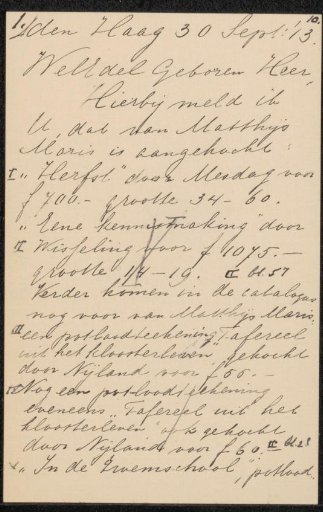 1/ den Haag 30 Sept: '13. 10.
WelEdel Geboren Heer,
Hierbij meld ik
U, dat van Matthijs
Maris is aangekocht:
I „Herfst" door Mesdag voor
f 700.- grootte 34 - 60.
„Eene kennismaking" door
II Wisselingh voor f 1075.-
grootte 14 - 19. II bl. 57
Verder komen in de catalogus
nog voor van Matthijs Maris:
III een potloodteekening „Tafereel
uit het kloosterleven" gekocht
door Nijland voor f 55.-
IV Nog een potloodteekening
eveneens „Tafereel uit het
kloosterleven" gekocht
door Nijland voor f 60.- II bl. 28
„In de zwemschool", potlood.